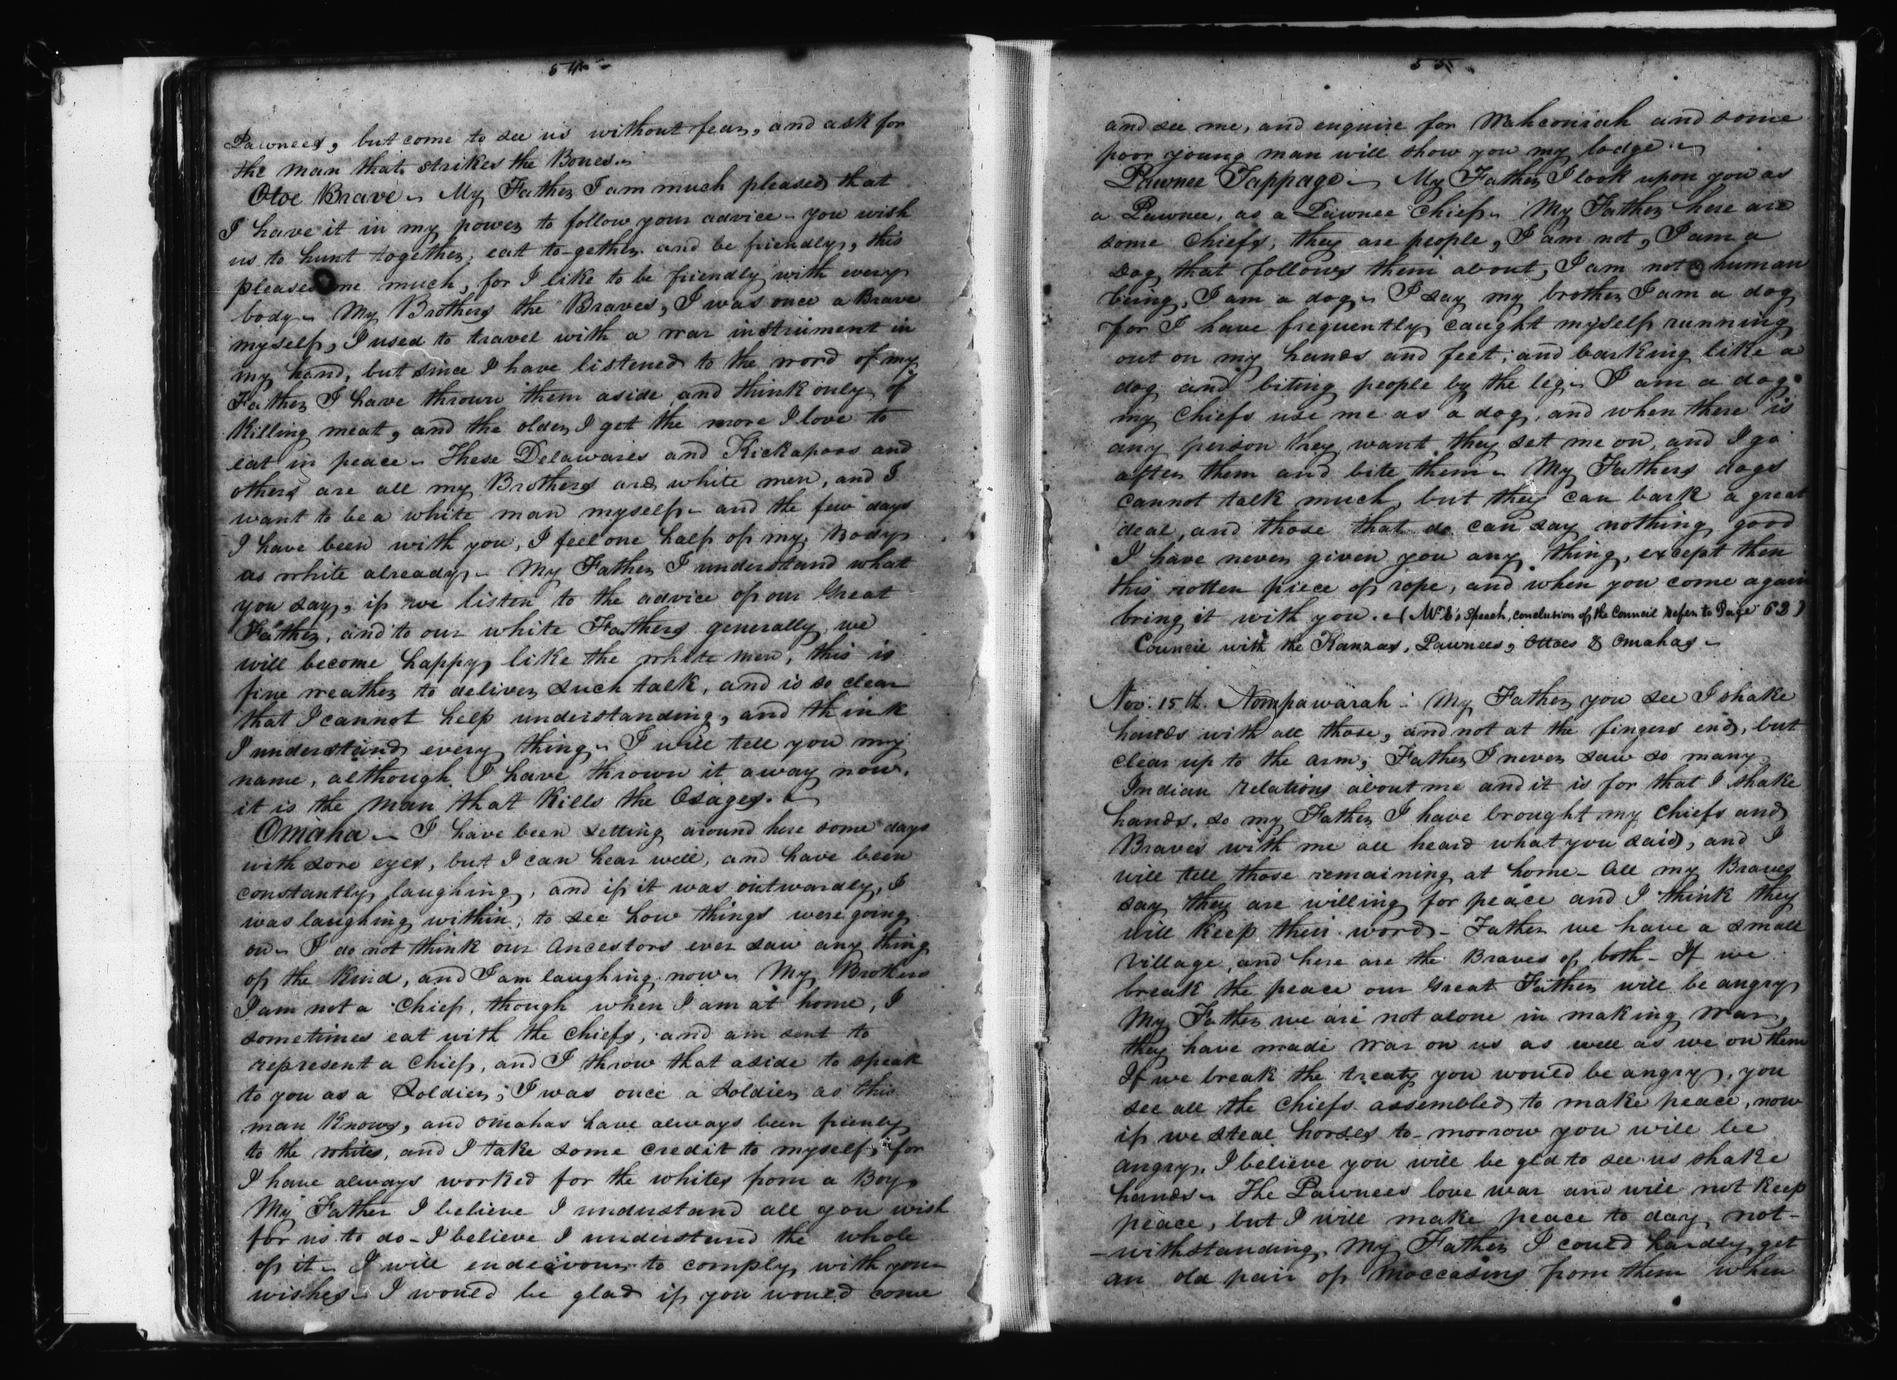 54
Pawnees, but come to see us without fear, and ask for
the man that strikes the Bones.
Otoe Brave - My Father I am much pleased that
I have it in my power to follow your advice - you wish
us to hunt together, eat to-gether and be friendly, this
pleases me much, for I like to be friendly with every
body - My Brothers the Braves, I was once a Brave
myself, I used to travel with a war instrument in
my hand, but since I have listened to the word of my
Father I have thrown them aside and think only of
Killing meat, and the older I get the more I love to
eat in peace - These Delawares and Kickapoos and
others are all my Brothers and white men, and I
want to be a white man myself - and the few days
I have been with you, I feel one half of my Body
as white already - My Father I understand what
you say, if we listen to the advice of our Great
Father, and to our white Fathers generally, we
will become happy like the white men, this is
fine weather to deliver such talk, and is so clear
that I cannot help understanding, and think
I understand every thing - I will tell you my
name, although I have thrown it away now,
it is the man that Kills the Osages. -
Omaha - I have been setting around here some days
with sore eyes, but I can hear well, and have been
constantly laughing, and if it was outwardly, I
was laughing within, to see how things were going
on - I do not think our Ancestors ever saw any thing
of the Kind, and I am laughing now - My Brothers
I am not a Chief, though when I am at home, I
sometimes eat with the Chiefs, and am sent to
represent a Chief, and I throw that aside to speak
to you as a Soldier, I was once a Soldier as this
man Knows, and Omahas have always been frienly
to the whites, and I take some credit to myself, for
I have always worked for the whites from a Boy
My Father I believe I understand all you wish
for us to do - I believe I understand the whole
of it - I will endeavour to comply with your
wishes - I would be glad if you would come
55
and see me, and enquire for Wahconiah and some
poor young man will show you my lodge -
Pawnee Tappage - My Father I look upon you as
a Pawnee, as a Pawnee Chief - My Father here are
some Chiefs, they are people, I am not, I am a
Dog that follows them about, I am not a human
being, I am a dog - I say my brother I am a dog
for I have frequently caught myself running
out on my hands and feet, and barking like a
dog and biting people by the leg - I am a dog
my Chiefs use me as a dog, and when there is
any person they want they set me on, and I go
after them and bite them - My Fathers dogs
cannot talk much, but they can bark a great
deal, and those that do can say nothing good
I have never given you any thing, except then
this rotten piece of rope, and when you come again
bring it with you. - (Mr E's Speech, conclusion of the Council refer to Page 63)
Council with the Kanzas, Pawnees, Ottoes & Omahas -
Nov. 15th. Nompawarah - My Father you see I shake
hands with all these, and not at the fingers end, but
clear up to the arm; Father I never saw so many
Indian relations about me and it is for that I shake
hands, so my Father I have brought my Chiefs and
Braves with me all heard what you said, and I
will tell those remaining at home - All my Braves
say they are willing for peace and I think they
will keep their word - Father we have a small
Village, and here are the Braves of both - If we
break the peace our Great Father will be angry
My Father we are not alone in making war,
they have made war on us as well as we on them
If we break the treaty you would be angry, you
see all the Chiefs assembled to make peace, now
if we steal horses to-morrow you will be
angry. I believe you will be glad to see us shake
hands - The Pawnees love war and will not keep
peace, but I will make peace to day not-
-withstanding, My Father I could hardly get
an old pair of Moccasins from them when